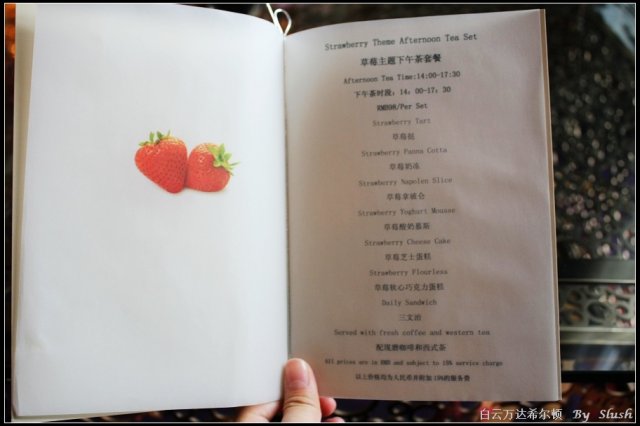 Strawberry Theme Afternoon Tea Set
草莓主题下午茶套餐
Afternoon Tea Time:14:00-17:30
下午茶时段: 14: 00-17: 30
RMB98/Per Set
Strawberry Tart
草莓挞
Strawberry Panna Cotta
草莓奶冻
Strawberry Napolen Slice
草莓拿破仑
Strawberry Yoghurt Mousse
草莓酸奶慕斯
Strawberry Cheese Cake
草莓芝士蛋糕
Strawberry Flourless
草莓软心巧克力蛋糕
Daily Sandwich
三文治
Served with fresh coffee and western tea
配现磨咖啡和西式茶
All prices are in RMB and subject to 15% service charge
以上价格均为人民币并附加 15%的服务费
白云万达希尔顿 By Slush